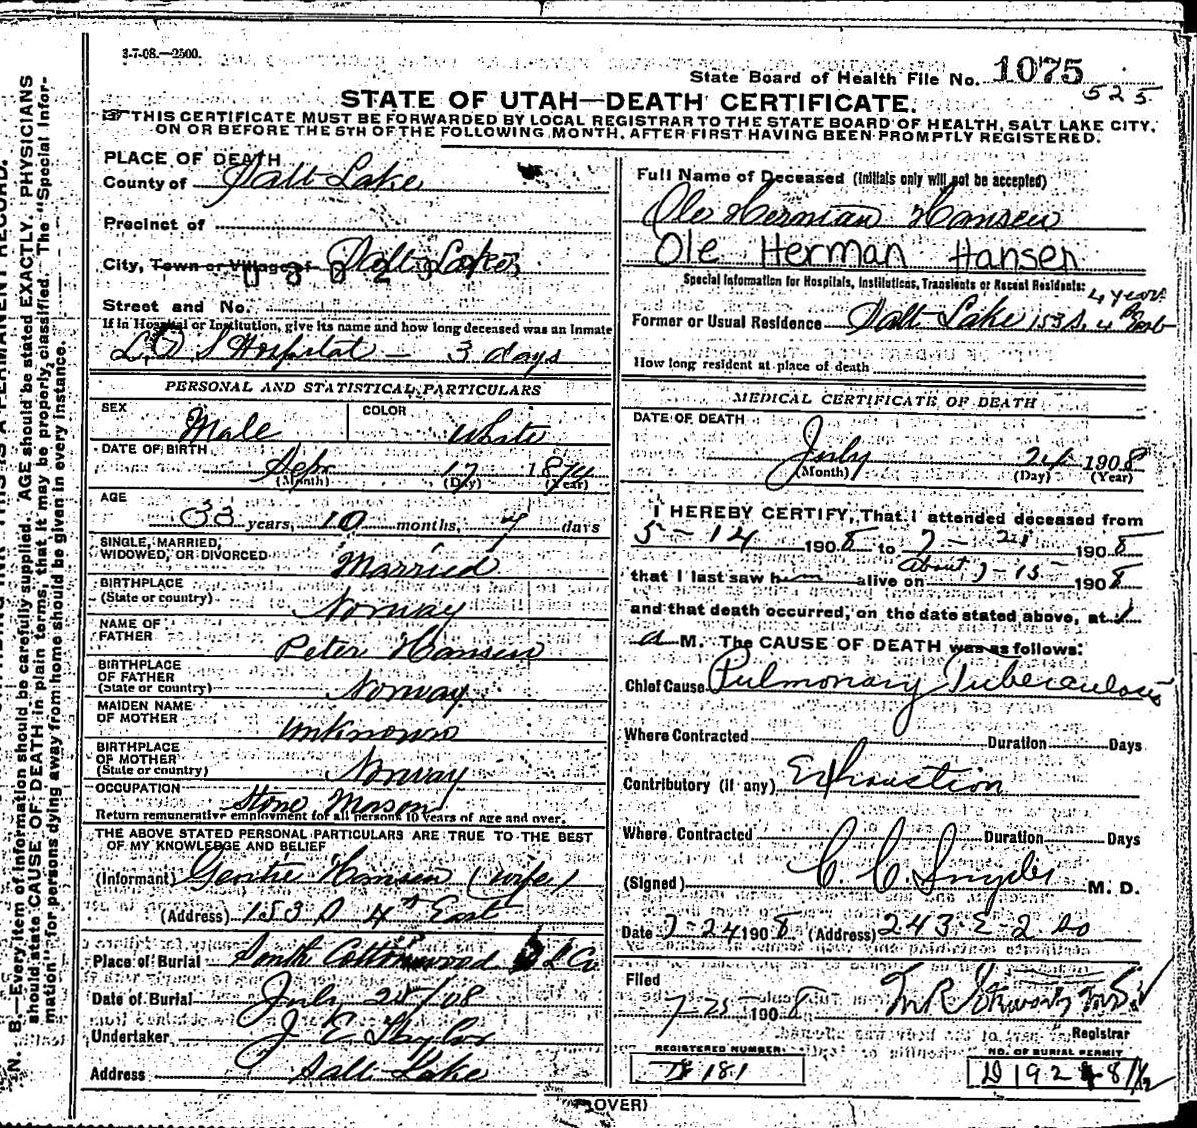 3-7-08.—2500.
State Board of Health File No. 1075
525
STATE OF UTAH—DEATH CERTIFICATE.
THIS CERTIFICATE MUST BE FORWARDED BY LOCAL REGISTRAR TO THE STATE BOARD OF HEALTH, SALT LAKE CITY,
ON OR BEFORE THE 5TH OF THE FOLLOWING MONTH, AFTER FIRST HAVING BEEN PROMPTLY REGISTERED.
PLACE OF DEATH
County of Salt Lake
Precinct of
City, Town or Village of Salt Lake
Street and No.
If in Hospital or Institution, give its name and how long deceased was an Inmate
L.D S Hospital — 3 days
PERSONAL AND STATISTICAL PARTICULARS
SEX Male
COLOR White
DATE OF BIRTH Sept 17 1874
(Month) (Day) (Year)
AGE
33 years, 10 months, 7 days
SINGLE, MARRIED,
WIDOWED, OR DIVORCED Married
BIRTHPLACE
(State or country) Norway
NAME OF
FATHER Peter Hansen
BIRTHPLACE
OF FATHER
(State or country) Norway
MAIDEN NAME
OF MOTHER Unknown
BIRTHPLACE
OF MOTHER
(State or country) Norway
OCCUPATION Stone Mason
Return remunerative employment for all persons 10 years of age and over.
THE ABOVE STATED PERSONAL PARTICULARS ARE TRUE TO THE BEST
OF MY KNOWLEDGE AND BELIEF
(Informant) Hansen (wife)
(Address) 153 S 4th East
Place of Burial South Cottonwood S L Co
Date of Burial July 25/08
Undertaker J E Taylor
Address Salt Lake
Full Name of Deceased (Initials only will not be accepted)
Ole Herman Hansen
Ole Herman Hansen
Special Information for Hospitals, Institutions, Transients or Recent Residents:
4 years
Former or Usual Residence Salt Lake 153 S. 4th East
How long resident at place of death
MEDICAL CERTIFICATE OF DEATH
DATE OF DEATH
July 24 1908
(Month) (Day) (Year)
I HEREBY CERTIFY, That I attended deceased from
5-14 1908 to 7-21 1908
that I last saw him alive on about 7-15 1908
and that death occurred, on the date stated above, at 1
a M. The CAUSE OF DEATH was as follows:
Chief Cause Pulmonary Tuberculosis
Where Contracted Duration Days
Contributory (if any) Exhaustion
Where Contracted Duration Days
(Signed) C. C. Snyder M. D.
Date 7-24 1908 (Address) 243-E-2 So
Filed
7-25-1908
Registrar
REGISTERED NUMBER
D 181
NO. OF BURIAL PERMIT
D 192
(OVER)
N. B.—Every item of information should be carefully supplied. AGE should be stated EXACTLY. PHYSICIANS
should state CAUSE OF DEATH in plain terms, that it may be properly classified. The "Special Infor-
mation" for persons dying away from home should be given in every instance.